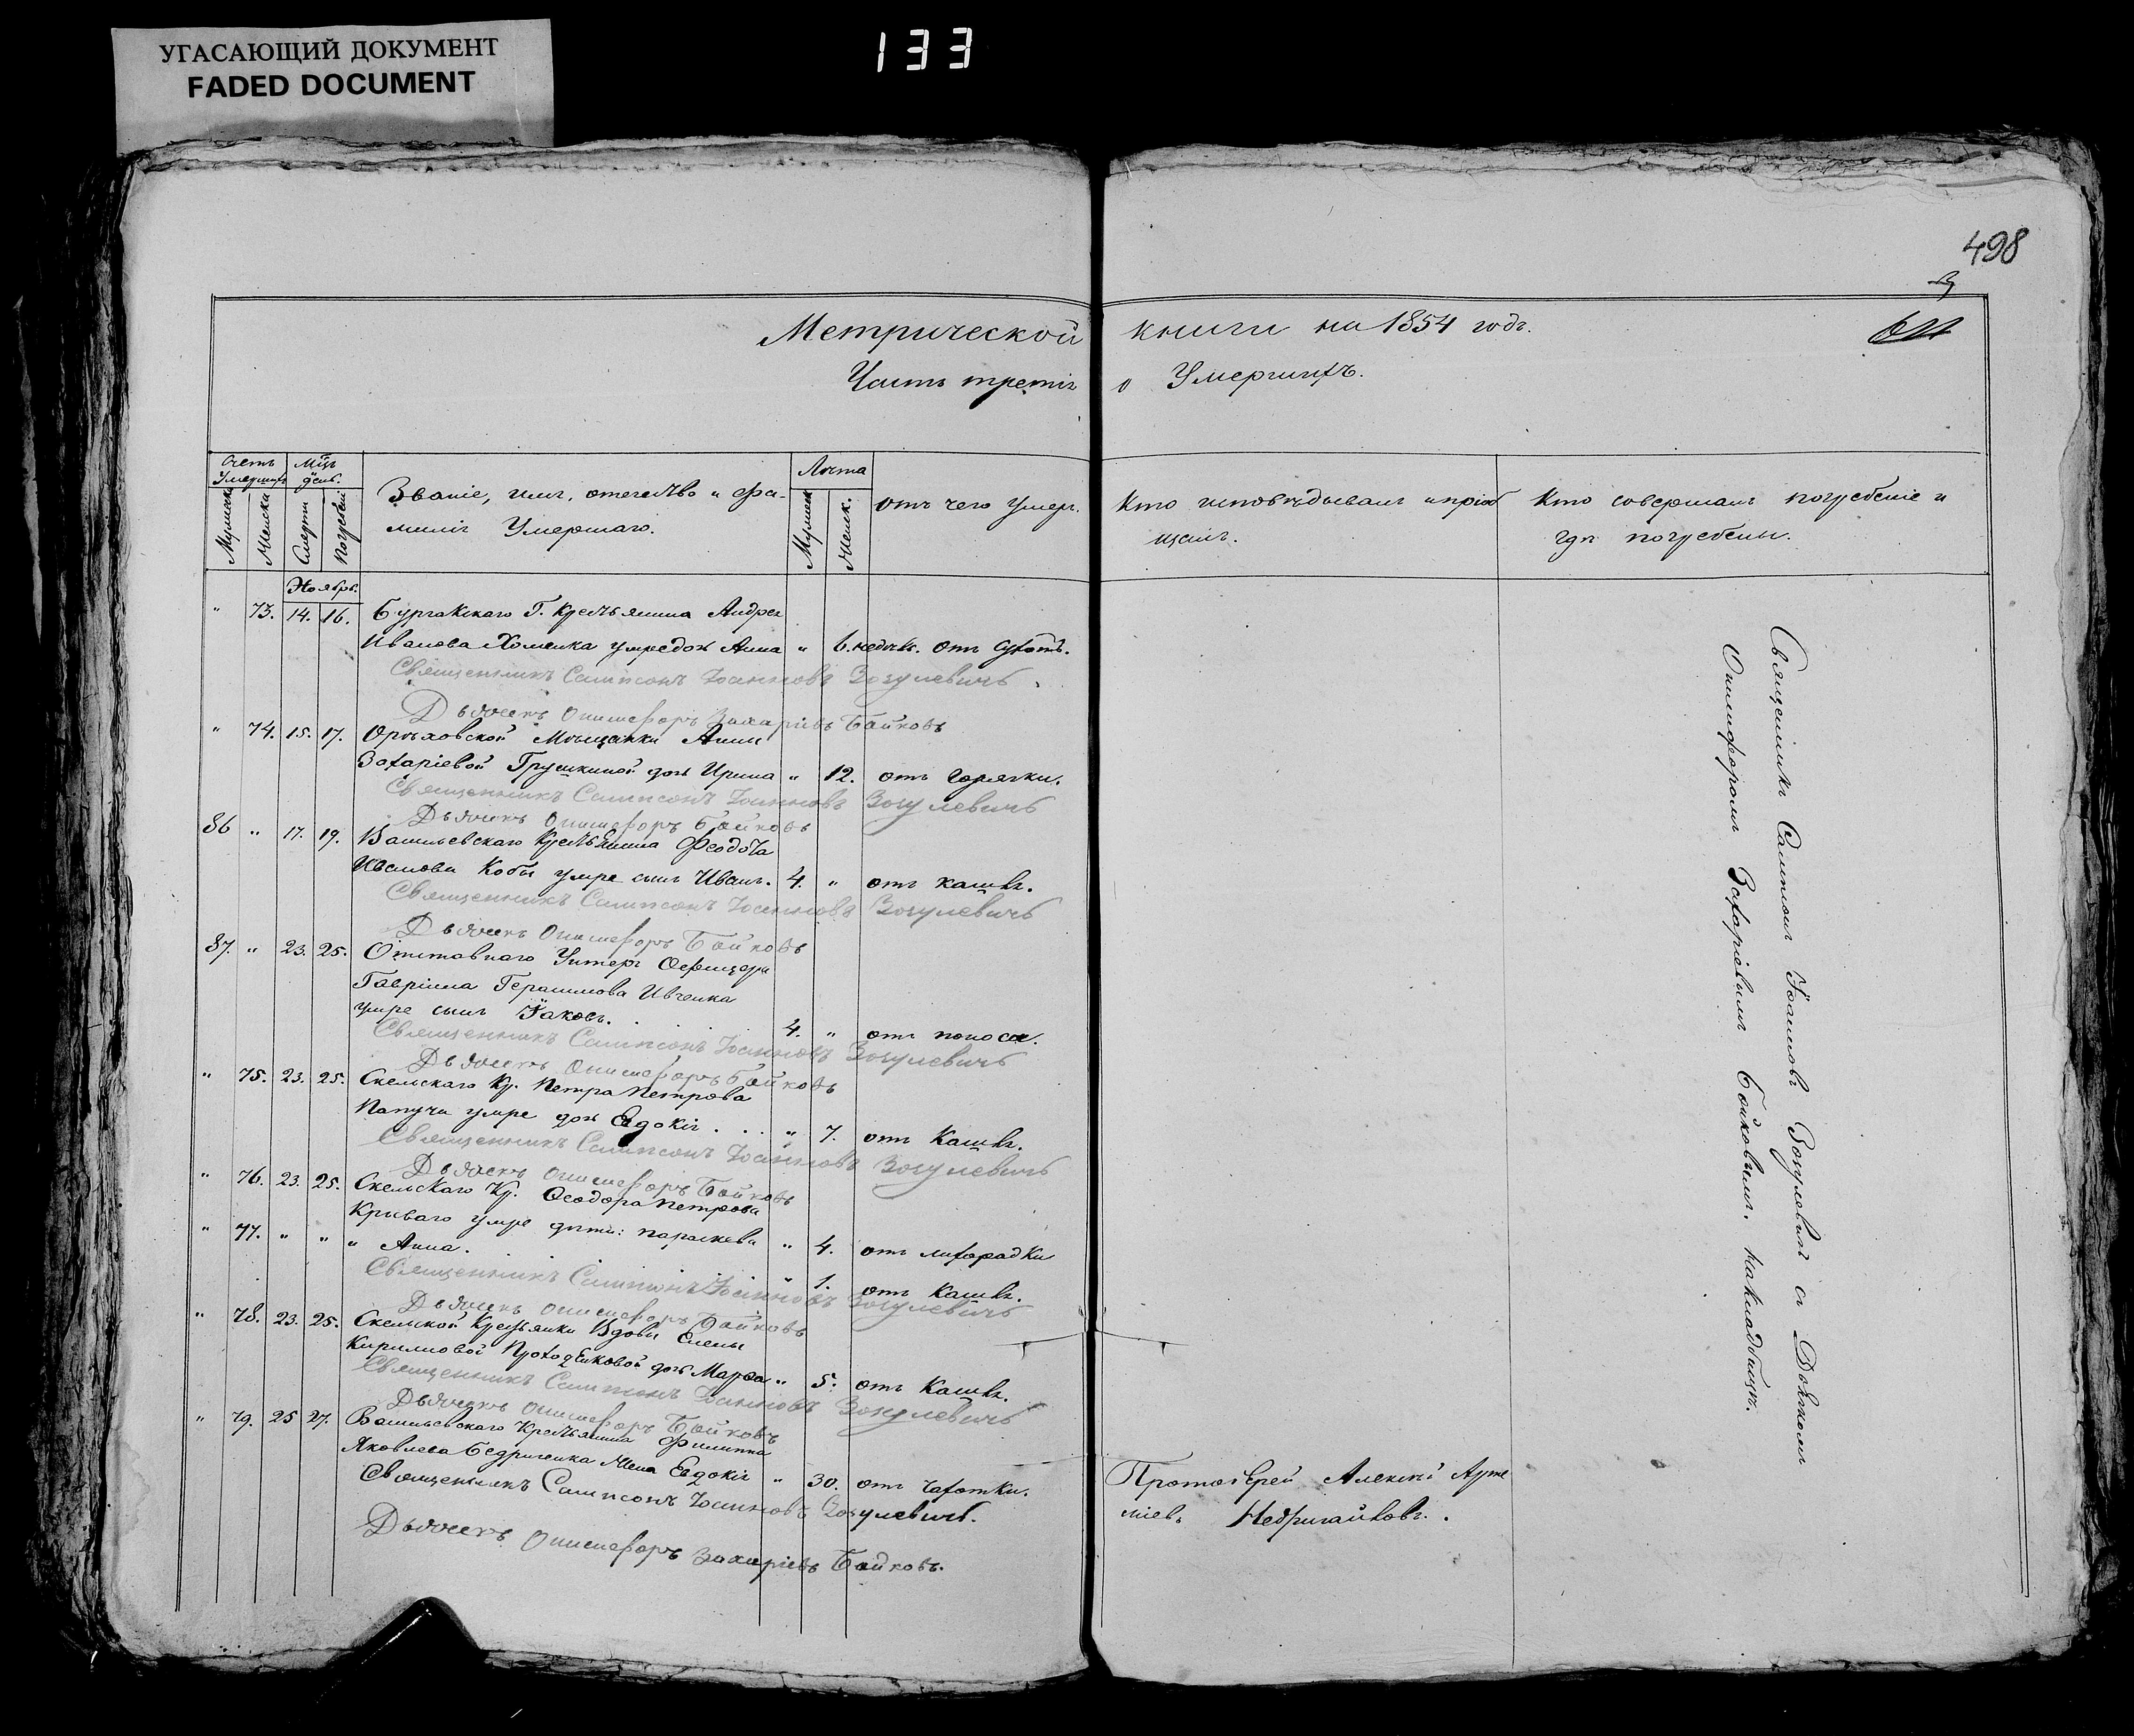 УГАСАЮЩИЙ ДОКУМЕНТ
FADED DOCUMENT
133
498
Метрической книги на 1854 годъ.
Часть третія о Умершихъ.
Счетъ Умершихъ
Мужеска
Женска
Мѣц. день.
Смерти
Погребенія
Званіе, имя, отечество и фа-
милія Умершаго.
Лѣта
Мужеск
Женск.
отъ чего умер.
Кто исповѣдывалъ и пріоб
щалъ.
Кто совершалъ погребеніе и
гдѣ погребены.
Ноябрь.
" 73. 14. 16. Бургакскаго Г. Крестьянина Андрея
Иванова Хоменка умре дочь Анна " 6. недѣль. отъ сухотъ.
Священникъ Сампсонъ Іоанновъ Возулевичъ.
Дьячекъ Онисифоръ Захаріевъ Байковъ
" 74. 15. 17. Орѣховской Мѣщанки Анны
Захаріевой Грушкиной дочь Ирина " 12. отъ горячки.
Священникъ Сампсонъ Іоанновъ Возулевичъ
Дьячекъ Онисифоръ Байковъ
86 " 17. 19. Васильевскаго Крестьянина Феодота
Иванова Кобы умре сынъ Иванъ. 4. " отъ кашля.
Священникъ Сампсонъ Іоанновъ Возулевичъ
Дьячекъ Онисифоръ Байковъ
87. " 23. 25. Отставнаго Унтеръ Офицера
Гавріила Герасимова Ивченка
умре сынъ Іаковъ. 4. " отъ поноса.
Священникъ Сампсонъ Іоанновъ Возулевичъ
Дьячекъ Онисифоръ Байковъ
" 75. 23. 25. Скельскаго Кр. Петра Петрова
Папучи умре дочь Евдокія . . . " 7. отъ Кашля.
Священникъ Сампсонъ Іоанновъ Возулевичъ
Дьячекъ Онисифоръ Байковъ
" 76. 23. 25. Скельскаго Кр. Ѳеодора Петрова
Криваго умре дѣти: Параскева " 4. отъ лихорадки
" 77. " " " Анна. " 1. отъ Кашля.
Священникъ Сампсонъ Іоанновъ Возулевичъ
Дьячекъ Онисифоръ Байковъ
" 78. 23. 25. Скельской Крестьянки Вдовы Елены
Кириловой дочь Марѳа " 5. отъ Кашля.
Священникъ Сампсонъ Іоанновъ Возулевичъ
Дьячекъ Онисифоръ Байковъ
" 79. 25 27. Васильевскаго Крестьянина Филиппа
Яковлева Бедриченка Жена Евдокія " 30. отъ Чахотки.
Священникъ Сампсонъ Іоанновъ Возулевичъ.
Дьячекъ Онисифоръ Захаріевъ Байковъ.
Протоіерей Алексій Арте
міевъ
Священникъ Сампсонъ Іоанновъ Возулевичъ съ Дьячкомъ
Онисифоромъ Захаріевымъ Байковымъ. на кладбищѣ.